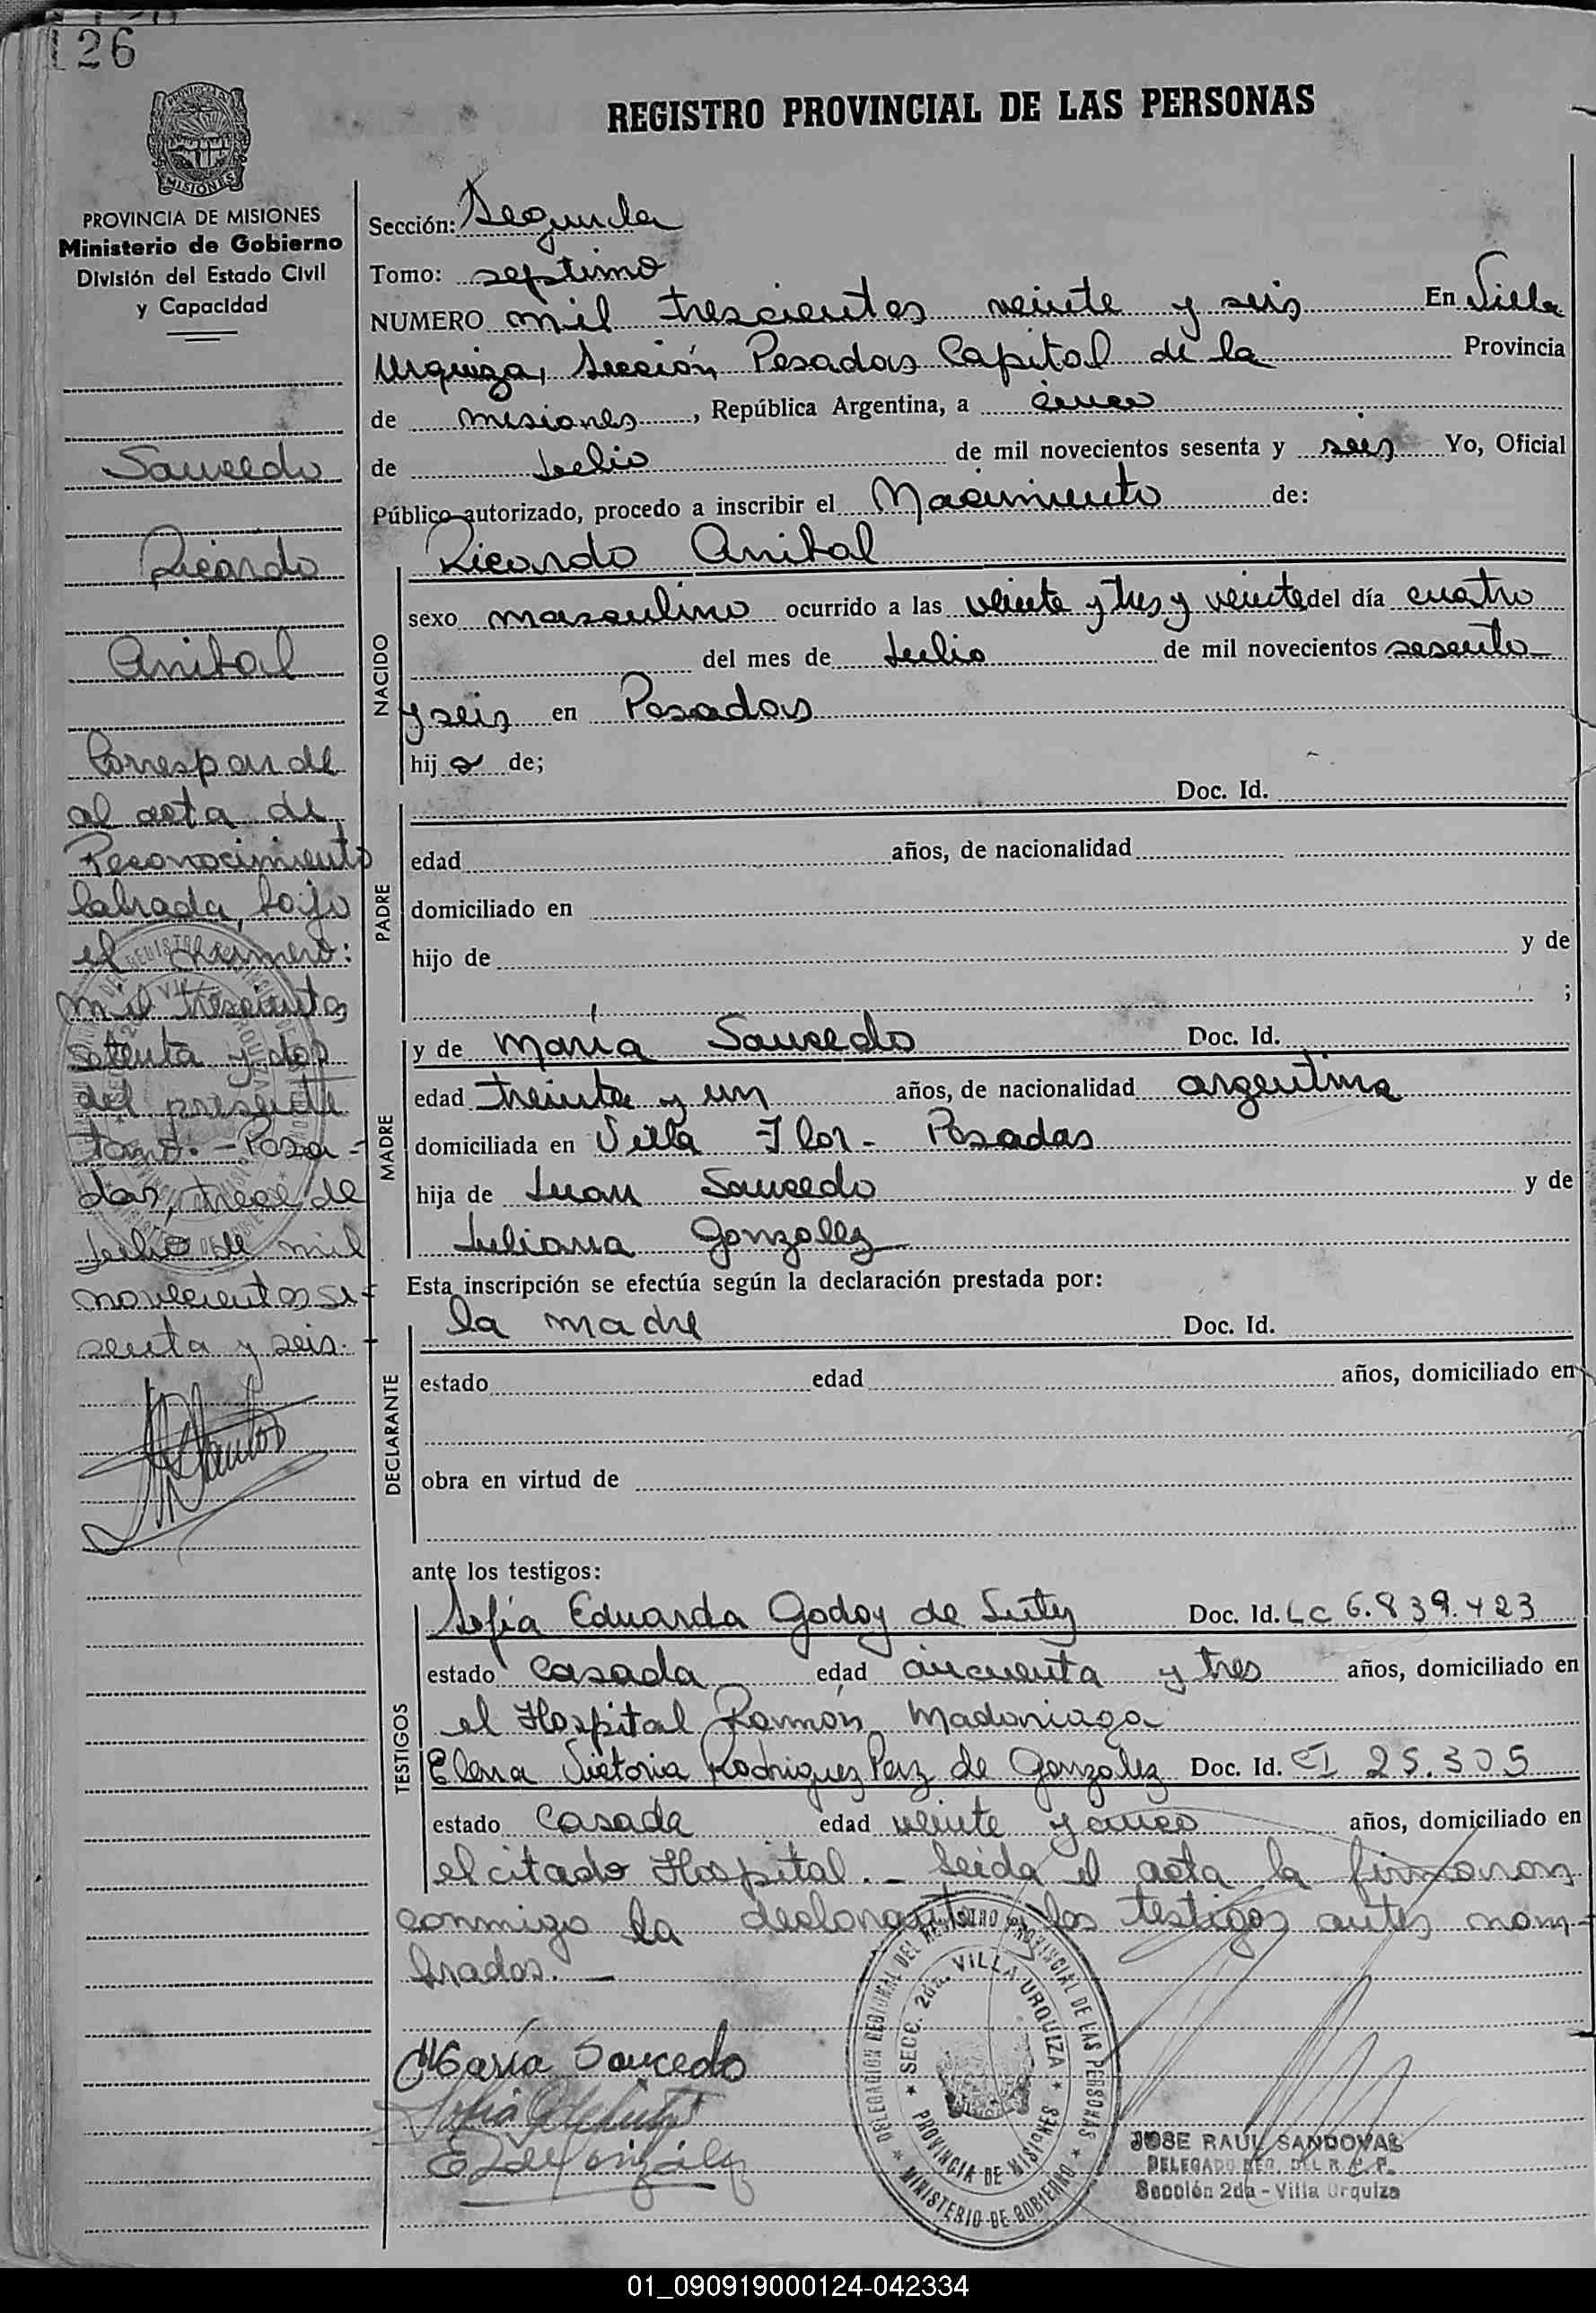 126
REGISTRO PROVINCIAL DE LAS PERSONAS
MISIONES
PROVINCIA DE MISIONES
Ministerio de Gobierno
División del Estado Civil
y Capacidad
Saucedo
Ricardo
Anibal
Corresponde
al acta de
Reconocimiento
labrada bajo
el número:
mil trescientos
setenta y dos
del presente
tomo. - Posa-
das, trece de
Julio de mil
novecientos se-
senta y seis.
Sección: Segunda
Tomo: septimo
NUMERO mil trescientos veinte y seis En Villa
Urquiza, Sección Posadas Capital de la Provincia
de misiones, República Argentina, a cinco
de Julio de mil novecientos sesenta y seis Yo, Oficial
Público autorizado, procedo a inscribir el Nacimiento de:
Ricardo Anibal
NACIDO
sexo masculino ocurrido a las veinte y tres y veinte del día cuatro
del mes de Julio de mil novecientos sesenta
y seis en Posadas
hijo de;
PADRE
Doc. Id.
edad años, de nacionalidad
domiciliado en
hijo de y de
;
MADRE
y de María Saucedo Doc. Id.
edad treinta y un años, de nacionalidad argentina
domiciliada en Villa Flor - Posadas
hija de Juan Saucedo y de
Juliana Gonzalez
Esta inscripción se efectúa según la declaración prestada por:
DECLARANTE
la madre Doc. Id.
estado edad años, domiciliado en
obra en virtud de
ante los testigos:
TESTIGOS
Sofía Eduarda Godoy de Doc. Id. LC 6.839.423
estado casada edad cincuenta y tres años, domiciliado en
el Hospital Ramón Madariaga
Elena Victoria Rodriguez Perz de Gonzalez Doc. Id. CI 25.305
estado casada edad veinte y cinco años, domiciliado en
el citado Hospital. - Leida el acta la firmaron
conmigo la declarante y los testigos antes nom-
brados. -
María Saucedo
DELEGACION REGIONAL DEL REGISTRO PROVINCIAL DE LAS PERSONAS
SECC. 2da. VILLA URQUIZA
PROVINCIA DE MISIONES
MINISTERIO DE GOBIERNO
JOSE RAUL SANDOVAL
DELEGADO REG. DEL R. P. P.
Sección 2da - Villa Urquiza
01_090919000124-042334